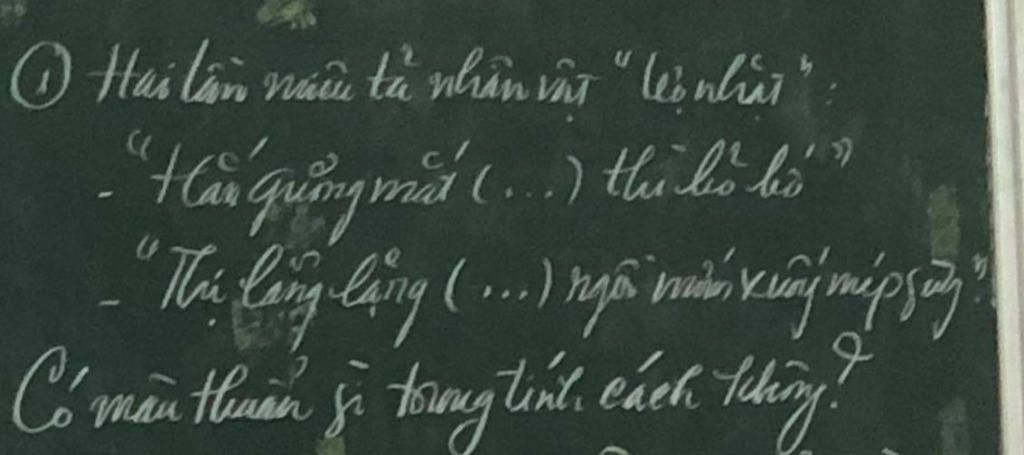 ① Hai lần miêu tả nhân vật "vợ nhặt":
- "Hắn giương mắt (...) thì bỏ bố"
- "Thị lẳng lặng (...) ngồi mớm xuống mép giường".
Có mâu thuẫn gì trong tính cách không?